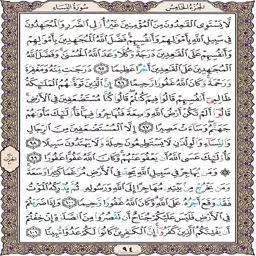 الجزء الخامس سورة النساء
لا يستوى القاعدون من المؤمنين غير أولى الضرر والمجاهدون
فى سبيل الله بأموالهم وأنفسهم فضل الله المجاهدين بأموالهم
وأنفسهم على القاعدين درجة وكلا وعد الله الحسنى وفضل الله
المجاهدين على القاعدين أجرا عظيما ٩٥ درجات منه ومغفرة
ورحمة وكان الله غفورا رحيما ٩٦ إن الذين توفاهم الملائكة
ظالمى أنفسهم قالوا فيم كنتم قالوا كنا مستضعفين فى الأرض
قالوا ألم تكن أرض الله واسعة فتهاجروا فيها فأولئك مأواهم
جهنم وساءت مصيرا ٩٧ إلا المستضعفين من الرجال
والنساء والولدان لا يستطيعون حيلة ولا يهتدون سبيلا ٩٨
فأولئك عسى الله أن يعفو عنهم وكان الله عفوا غفورا ٩٩
ومن يهاجر فى سبيل الله يجد فى الأرض مراغما كثيرا وسعة
ومن يخرج من بيته مهاجرا إلى الله ورسوله ثم يدركه الموت
فقد وقع أجره على الله وكان الله غفورا رحيما ١٠٠ وإذا ضربتم
فى الأرض فليس عليكم جناح أن تقصروا من الصلاة إن خفتم
أن يفتنكم الذين كفروا إن الكافرين كانوا لكم عدوا مبينا ١٠١
٩٤